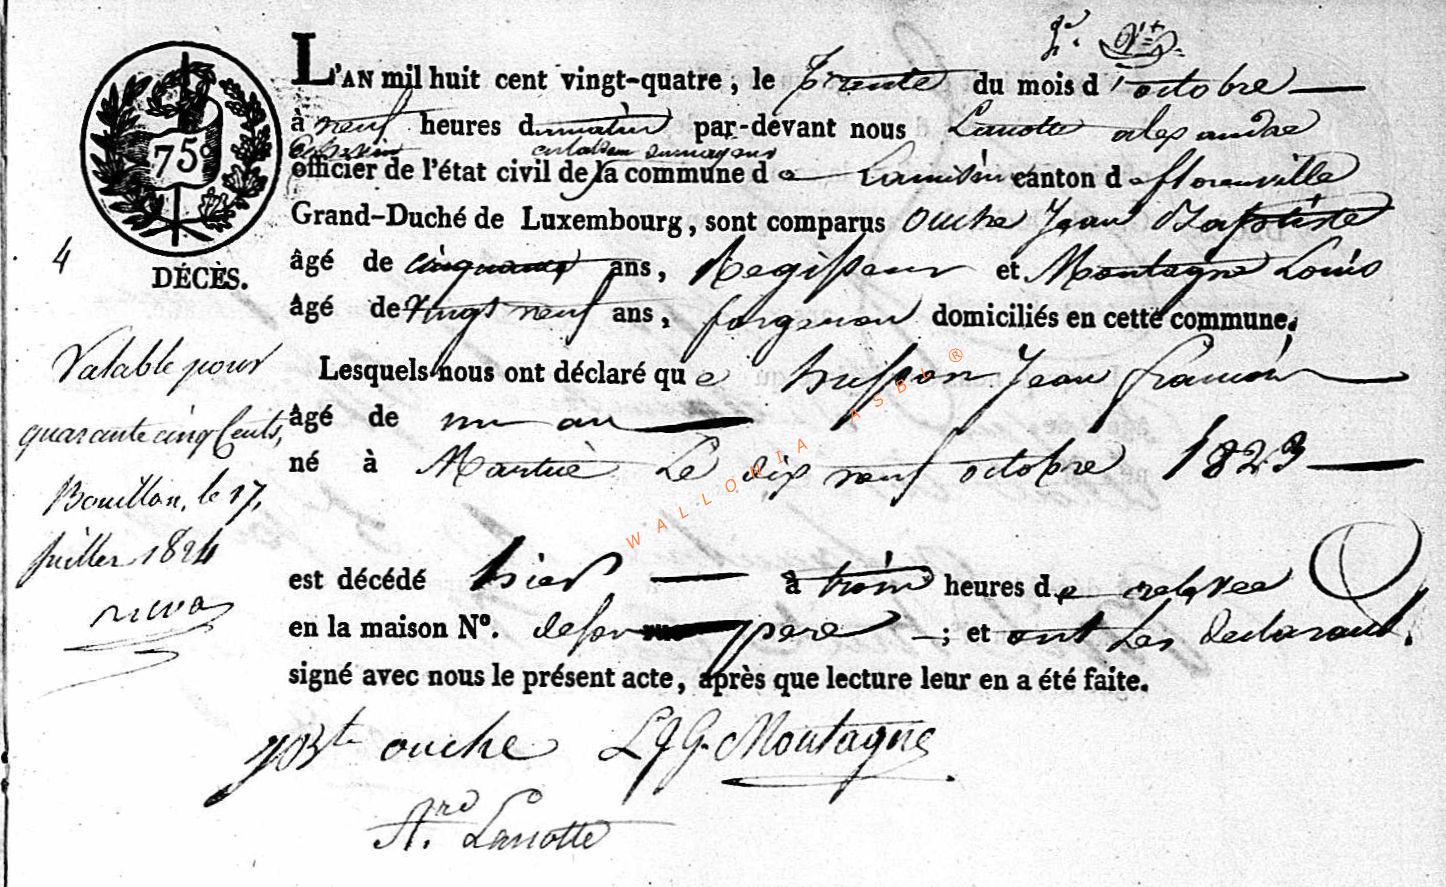 L'AN mil huit cent vingt-quatre, le trente du mois d'octobre
à neuf heures du matin par-devant nous Lanotte alexandre
echevin
officier de l'état civil de la commune de canton de florenville
Grand-Duché de Luxembourg, sont comparus ouche Jean Baptiste
4
âgé de cinquante ans, Regisseur et Montagne Louis
DÉCÈS.
âgé de vingt neuf ans, forgeron domiciliés en cette commune.
Lesquels nous ont déclaré que husson Jean françois
âgé de un an
né à Martué Le dix neuf octobre 1823
est décédé hier à trois heures de relevée
en la maison N°. de son père; et ont Les declarants
signé avec nous le présent acte, après que lecture leur en a été faite.
75
Valable pour
quarante cinq Cents,
Bouillon, le 17,
juillet 1824
JBte ouche LJG Montagne
Ard Lanotte
WALLONIA ASBL ®